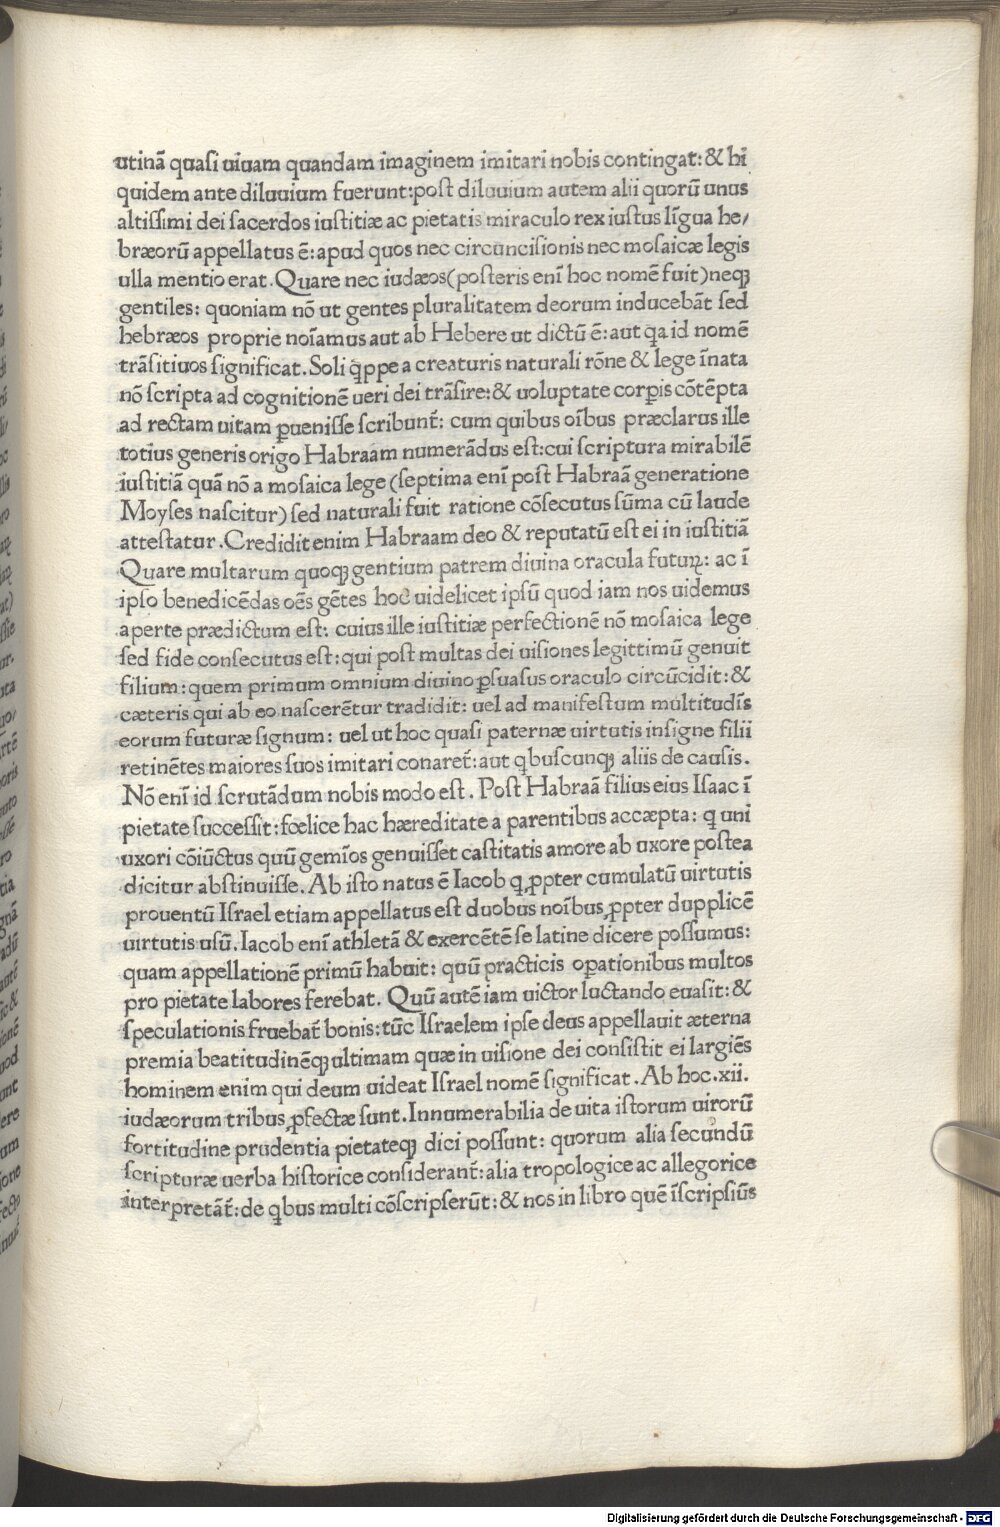 utinā quaſi uiuam quandam imaginem imitari nobis contingat: & hi
quidem ante diluuium fuerunt: poſt diluuium autem alii quorū unus
altiſſimi dei ſacerdos iuſtitiæ ac pietatis miraculo rex iuſtus līgua he/
bræorū appellatus ē: apud quos nec circunciſionis nec moſaicæ legis
ulla mentio erat. Quare nec iudæos(poſteris enī hoc nomē fuit)neqꝫ
gentiles: quoniam nō ut gentes pluralitatem deorum inducebāt ſed
hebræos proprie noīamus aut ab Hebere ut dictū ē: aut qa id nomē
trāſitiuos ſignificat. Soli qppe a creaturis naturali rōne & lege īnata
nō ſcripta ad cognitionē ueri dei trāſire: & uoluptate corꝑis cōtēpta
ad rectam uitam ꝑueniſſe ſcribunt̄: cum quibus oībus præclarus ille
totius generis origo Habraam numerādus eſt: cui ſcriptura mirabilē
iuſtitiā quā nō a moſaica lege (ſeptima enī poſt Habraā generatione
Moyſes naſcitur) ſed naturali fuit ratione cōſecutus ſūma cū laude
atteſtatur. Credidit enim Habraam deo & reputatū eſt ei in iuſtitiā
Quare multarum quoqꝫ gentium patrem diuina oracula futuꝝ: ac ī
ipſo benedicēdas oēs gētes hoc uidelicet ipſū quod iam nos uidemus
aperte prædictum eſt: cuius ille iuſtitiæ perfectionē nō moſaica lege
ſed fide conſecutus eſt: qui poſt multas dei uiſiones legittimū genuit
filium: quem primum omnium diuino ꝑſuaſus oraculo circūcidit: &
cæteris qui ab eo naſcerētur tradidit: uel ad manifeſtum multitudīs
eorum futuræ ſignum: uel ut hoc quaſi paternæ uirtutis inſigne filii
retinētes maiores ſuos imitari conaret̄: aut qbuſcunqꝫ aliis de cauſis.
Nō enī id ſcrutādum nobis modo eſt. Poſt Habraā filius eius Iſaac ī
pietate ſucceſſit: fœlice hac hæreditate a parentibus accæpta: q uni
uxori cōiūctus quū gemīos genuiſſet caſtitatis amore ab uxore poſtea
dicitur abſtinuiſſe. Ab iſto natus ē Iacob q ꝓpter cumulatū uirtutis
prouentū Iſrael etiam appellatus eſt duobus noībus ꝓpter dupplicē
uirtutis uſū. Iacob enī athletā & exercētē ſe latine dicere poſſumus:
quam appellationē primū habuit: quū practicis oꝑationibus multos
pro pietate labores ferebat. Quū autē iam uictor luctando euaſit: &
ſpeculationis fruebat̄ bonis: tūc Iſraelem ipſe deus appellauit æterna
premia beatitudinēqꝫ ultimam quæ in uiſione dei conſiſtit ei largiēs
hominem enim qui deum uideat Iſrael nomē ſignificat. Ab hoc .xii.
iudæorum tribus ꝓfectæ ſunt. Innumerabilia de uita iſtorum uirorū
fortitudine prudentia pietateqꝫ dici poſſunt: quorum alia ſecundū
ſcripturæ uerba hiſtorice conſiderant̄: alia tropologice ac allegorice
interpretāt̄: de qbus multi cōſcripſerūt: & nos in libro quē īſcripſiūs
Digitalisierung gefördert durch die Deutsche Forschungsgemeinschaft - DFG